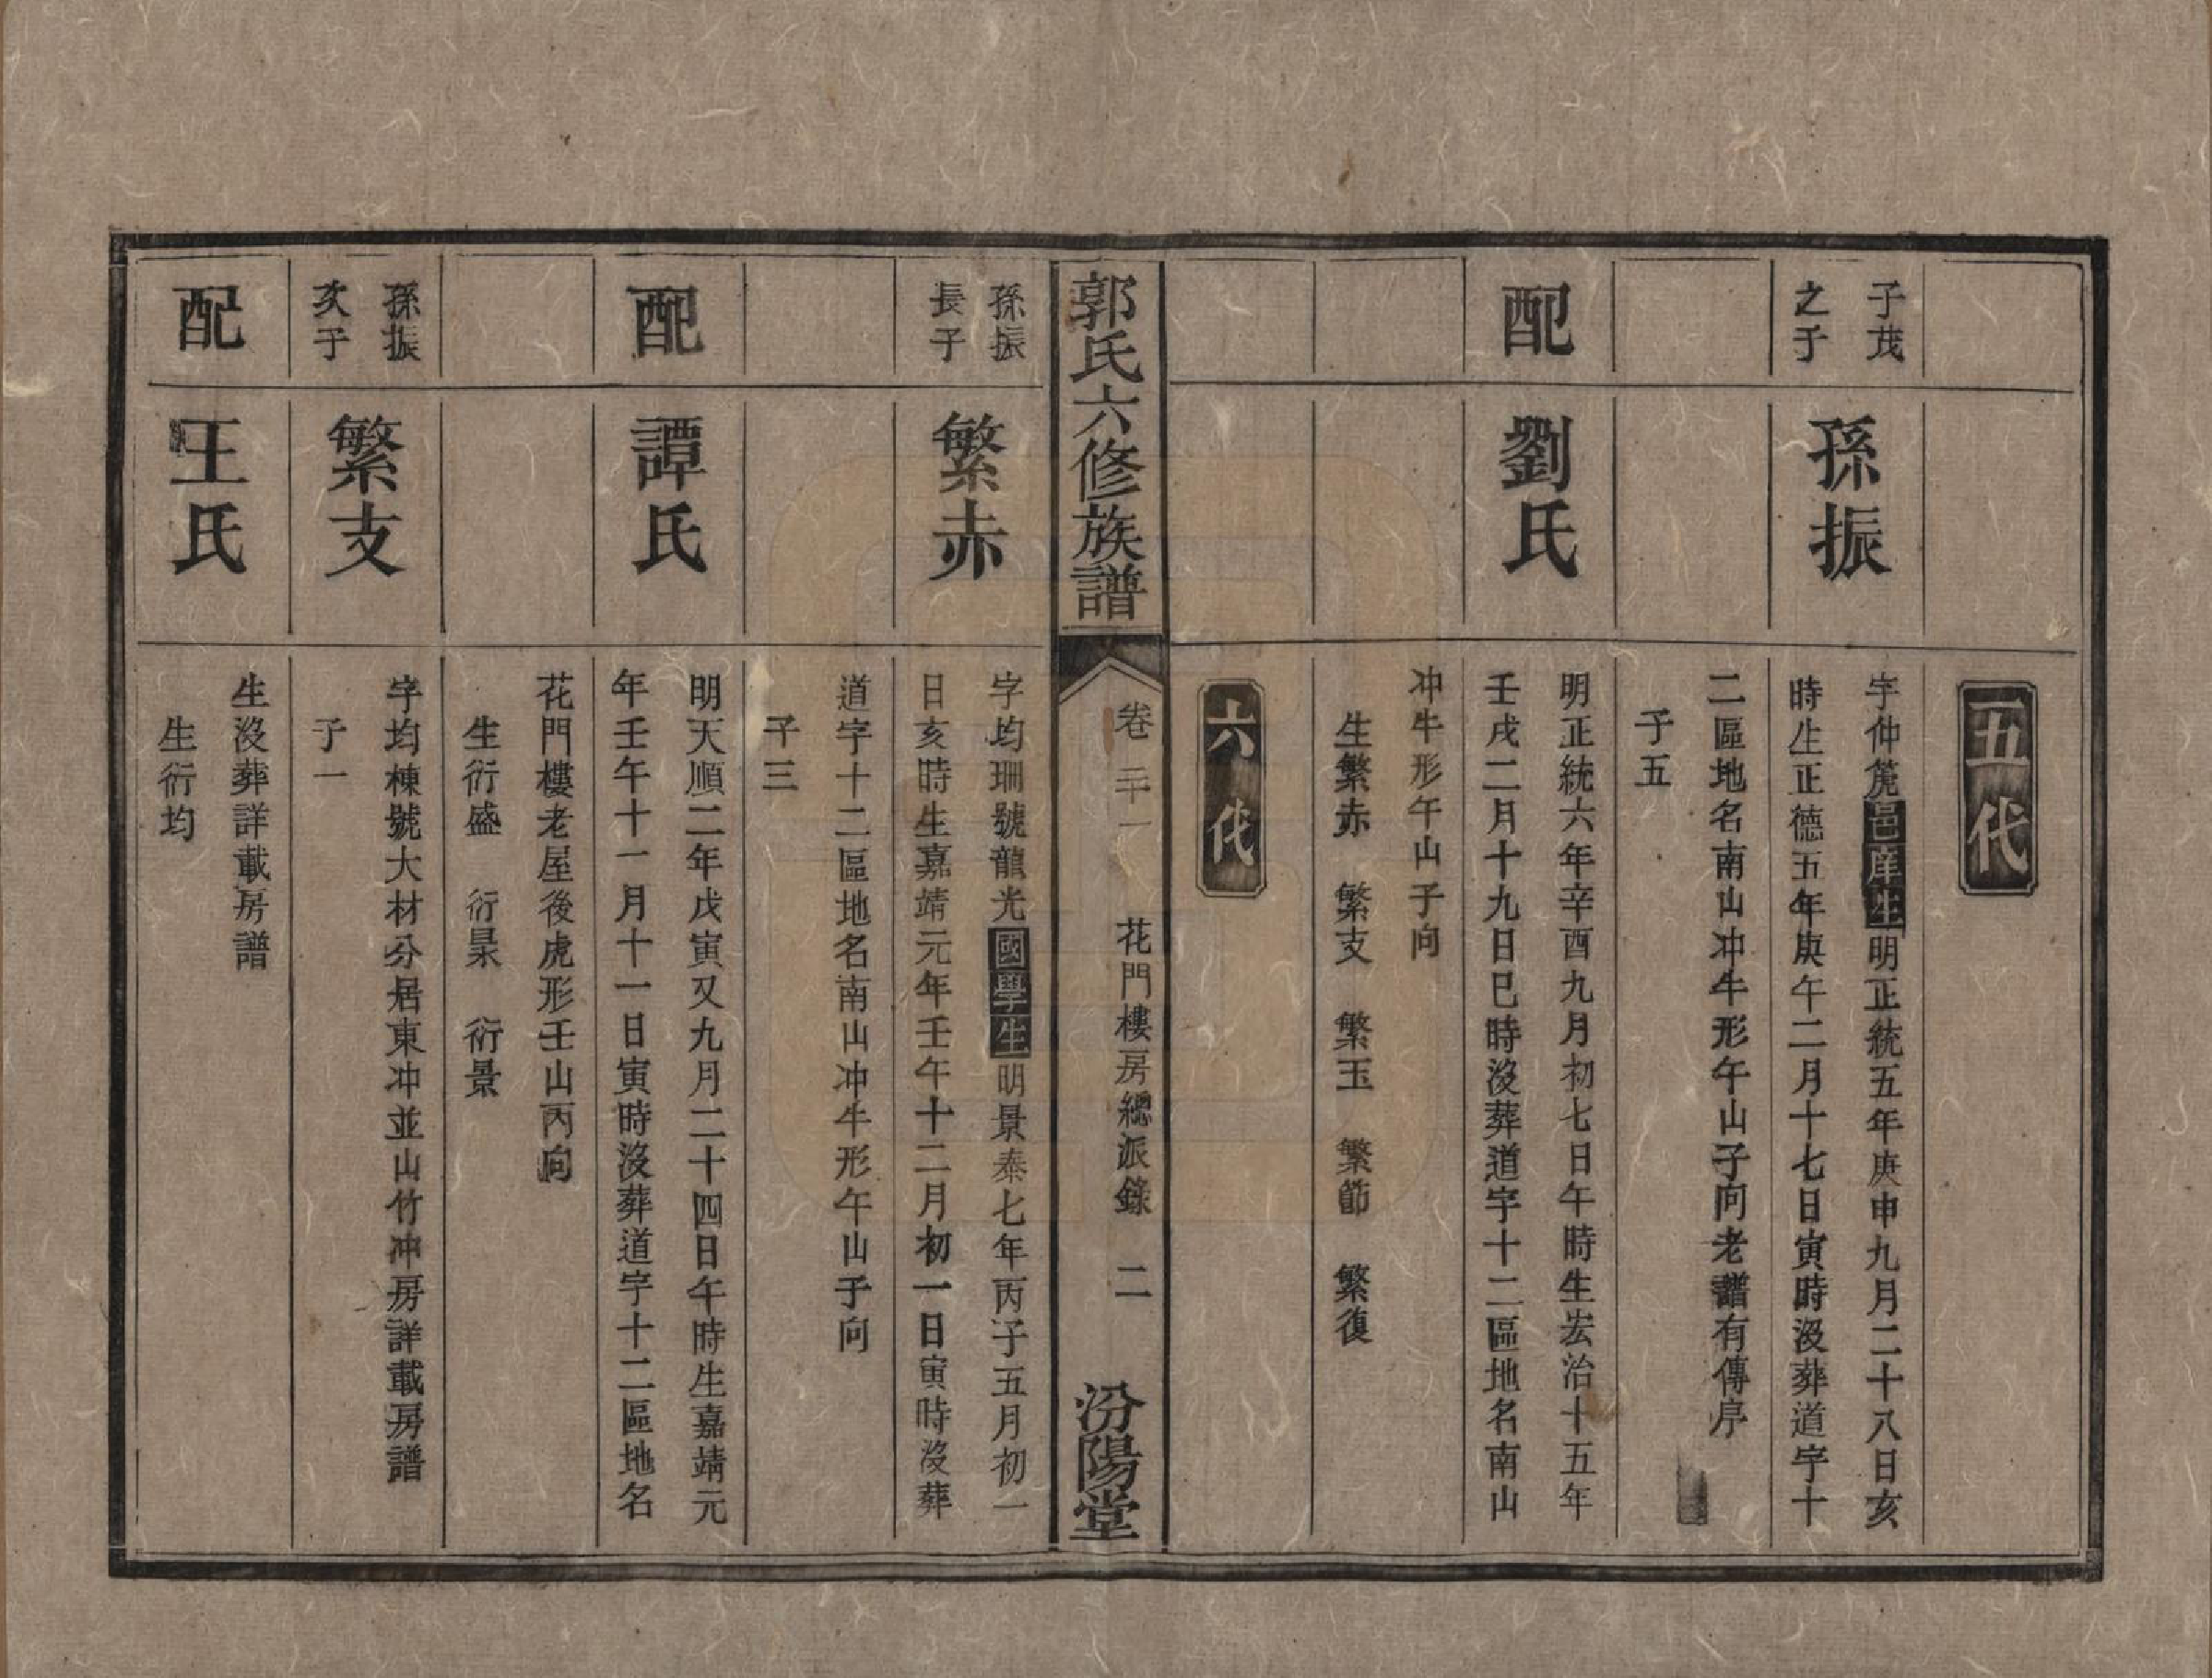 五代
子茂
之子
孫振
字仲箎邑庠生明正統五年庚申九月二十八日亥
時生正德五年庚午二月十七日寅時沒葬道字十
二區地名南山冲牛形午山子向老譜有傳序
子五
配
劉氏
明正統六年辛酉九月初七日午時生宏治十五年
壬戌二月十九日巳時沒葬道字十二區地名南山
冲牛形午山子向
生繁赤　繁支　繁玉　繁節　繁復
六代
郭氏六修族譜
卷三十一
花門樓房總派錄　二
汾陽堂
孫振
長子
繁赤
字均珊號龍光國學生明景泰七年丙子五月初一
日亥時生嘉靖元年壬午十二月初一日寅時沒葬
道字十二區地名南山冲牛形午山子向
子三
配
譚氏
明天順二年戊寅又九月二十四日午時生嘉靖元
年壬午十一月十一日寅時沒葬道字十二區地名
花門樓老屋後虎形壬山丙向
生衍盛　衍杲　衍景
孫振
次子
繁支
字均棟號大材分居東冲並山竹冲房詳載房譜
子一
配
王氏
生沒葬詳載房譜
生衍均